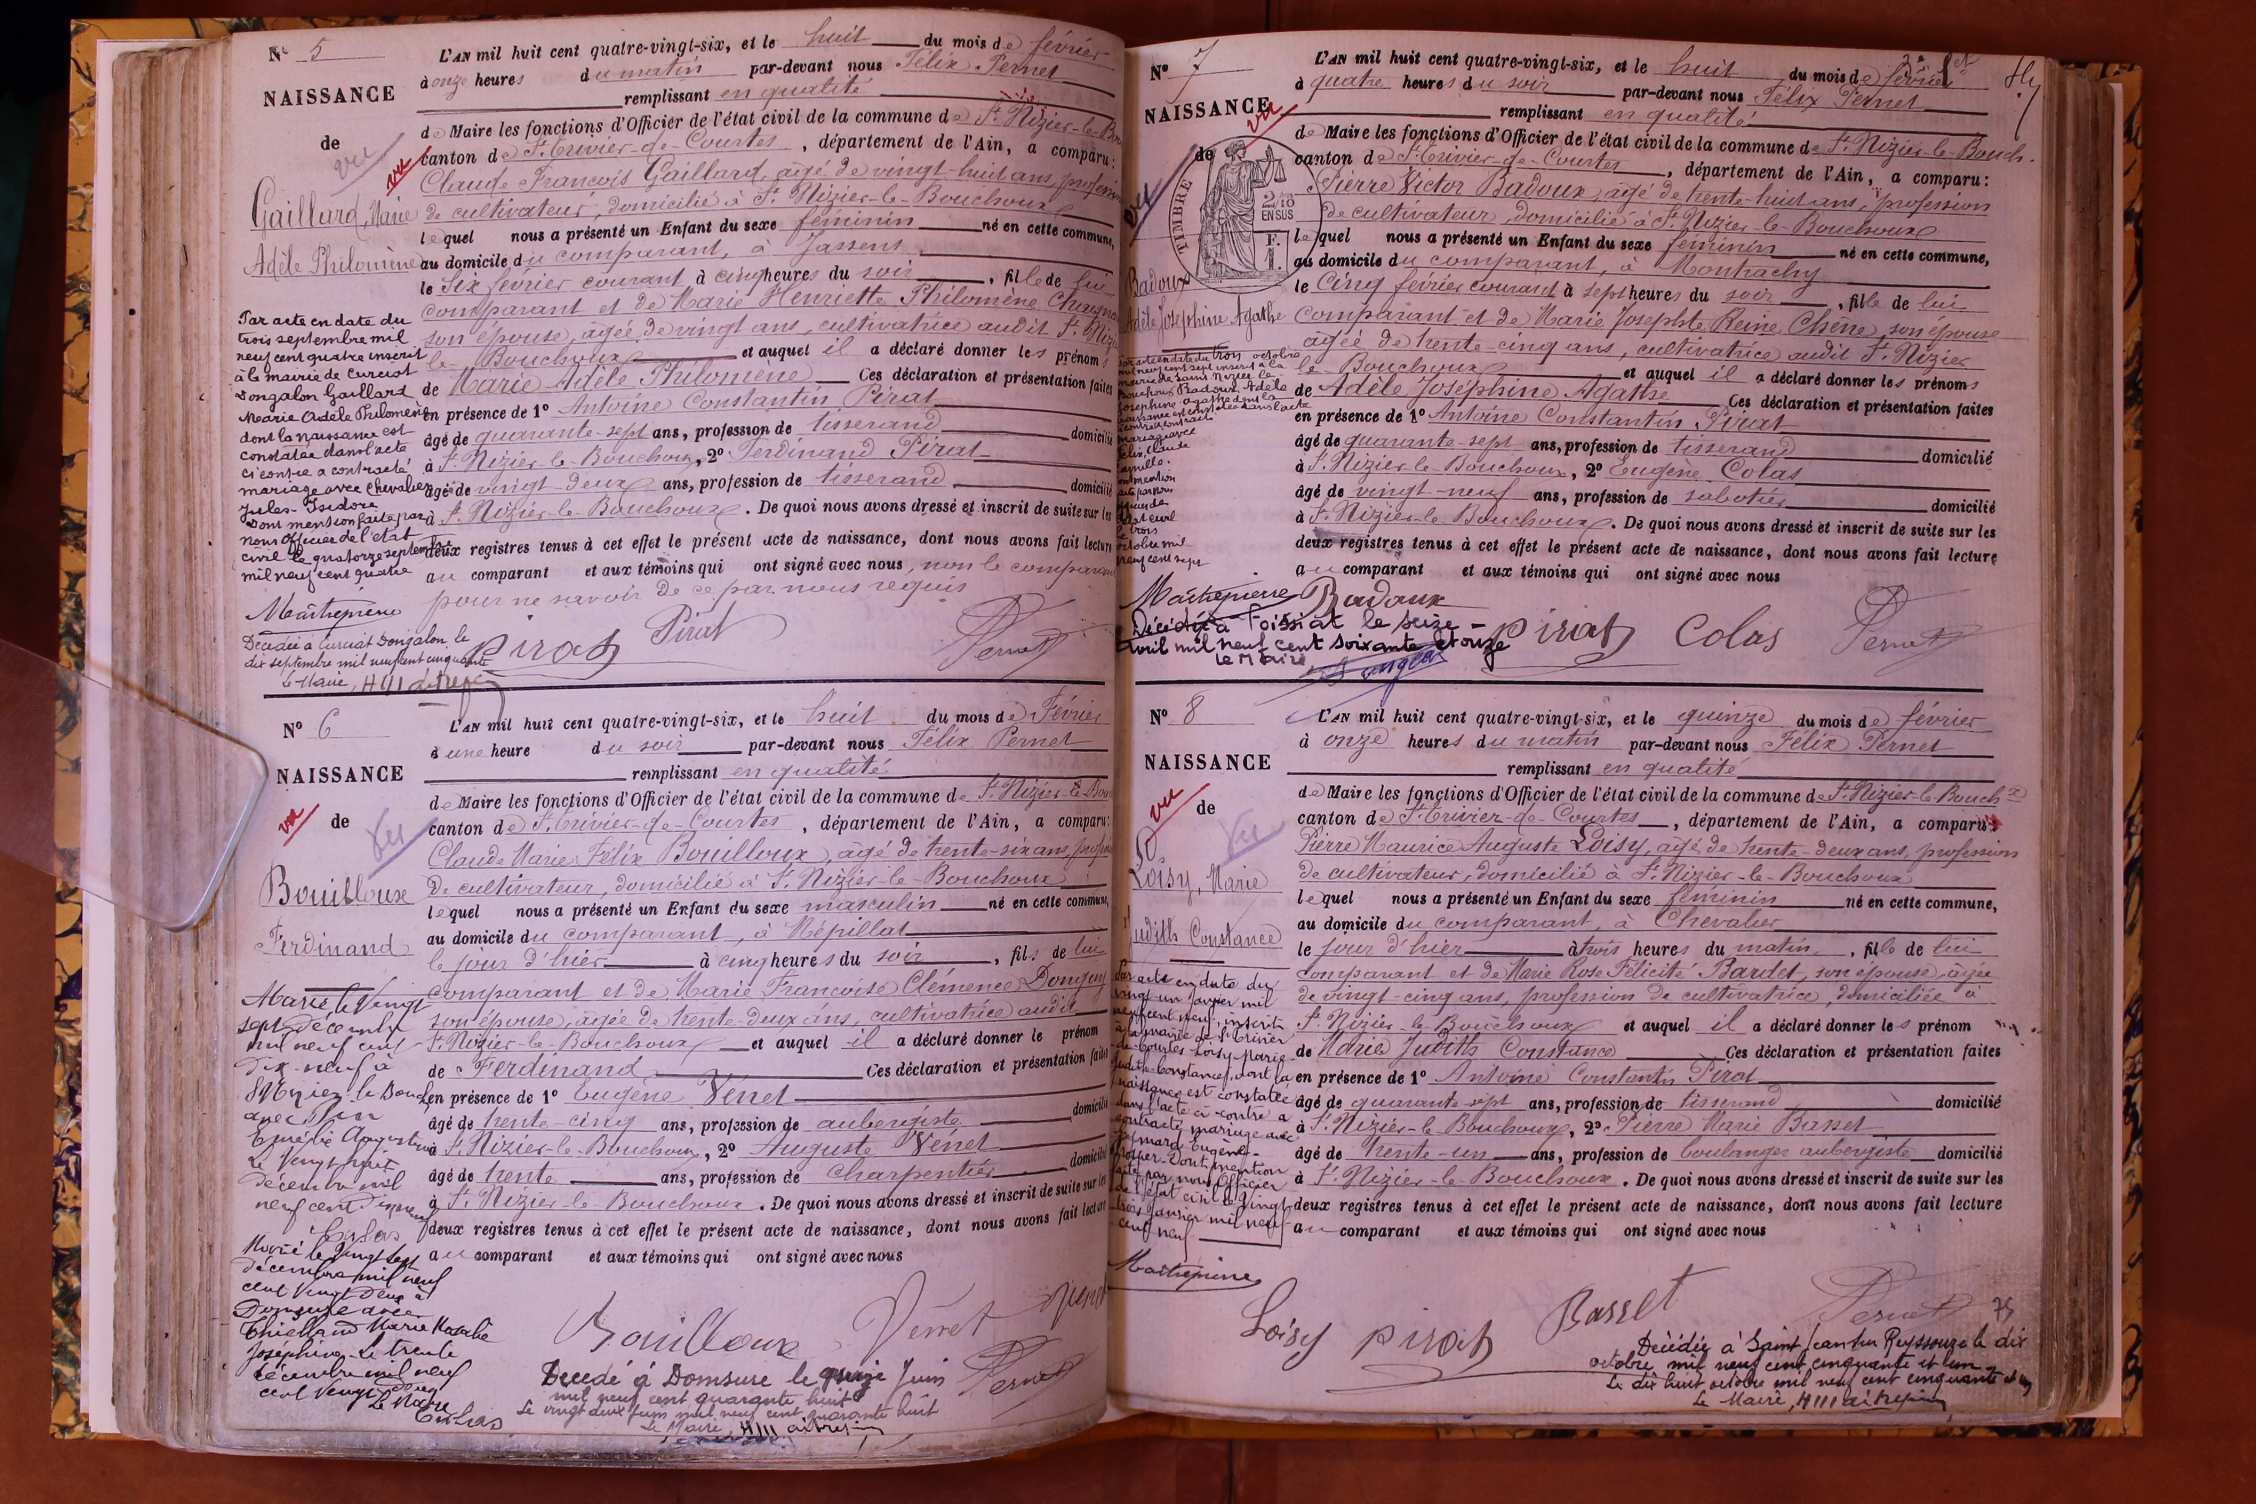 Nº 5
NAISSANCE
de
vu
vu
Gaillard, Marie
Adèle Philomène
L'AN mil huit cent quatre-vingt-six, et le huit du mois de février
à onze heures du matin par-devant nous Félix Pernet
remplissant en qualité
de Maire les fonctions d'Officier de l'état civil de la commune de St. Nizier-le-Bou
canton de St. Trivier-de-Courtes, département de l'Ain, a comparu:
Claude François Gaillard, âgé de vingt-huit ans, profession
de cultivateur, domicilié à St. Nizier-le-Bouchoux
lequel nous a présenté un Enfant du sexe féminin né en cette commune,
au domicile du comparant, à Jassens
le six février courant à cinq heures du soir, fille de lui
comparant et de Marie Henriette Philomène
son épouse, âgée de vingt ans, cultivatrice audit St. Nizier
le-Bouchoux et auquel il a déclaré donner les prénoms
de Marie Adèle Philomène Ces déclaration et présentation faites
en présence de 1º Antoine Constantin Pirat
âgé de quarante-sept ans, profession de tisserand domicilié
à St. Nizier-le-Bouchoux, 2º Ferdinand Pirat
âgé de vingt-deux ans, profession de tisserand domicilié
à St. Nizier-le-Bouchoux. De quoi nous avons dressé et inscrit de suite sur les
deux registres tenus à cet effet le présent acte de naissance, dont nous avons fait lecture
au comparant et aux témoins qui ont signé avec nous, non le comparant
pour ne savoir de ce par nous requis
Pirat Pirat Pernet
Par acte en date du
trois septembre mil
neuf cent quatre inscrit
à la mairie de Curciat
Dongalon Gaillard
Marie Adèle Philomène
dont la naissance est
constatée dans l'acte
ci contre a contracté
mariage avec Chevalier
Jules-Isidore
Dont mention faite par
nous Officier de l'état
civil le quatorze septembre
mil neuf cent quatre
Maitrepierre
Décédée à Curciat Dongalon le
dix septembre mil neuf cent cinquante
Le Maire,
Nº 6
NAISSANCE
vu
de
vu
Bouilloux
Ferdinand
L'AN mil huit cent quatre-vingt-six, et le huit du mois de Février
à une heure du soir par-devant nous Félix Pernet
remplissant en qualité
de Maire les fonctions d'Officier de l'état civil de la commune de St. Nizier-le-Bou
canton de St. Trivier-de-Courtes, département de l'Ain, a comparu:
Claude Marie Félix Bouilloux, âgé de trente-six ans, profes
de cultivateur, domicilié à St. Nizier-le-Bouchoux
lequel nous a présenté un Enfant du sexe masculin né en cette commune,
au domicile du comparant, à Mépillat
le jour d'hier à cinq heures du soir, fils de lui
comparant et de Marie Françoise Clémence
son épouse, âgée de trente-deux ans, cultivatrice audit
St. Nizier-le-Bouchoux et auquel il a déclaré donner le prénom
de Ferdinand Ces déclaration et présentation faites
en présence de 1º Eugène Venet
âgé de trente-cinq ans, profession de aubergiste domicilié
à St. Nizier-le-Bouchoux, 2º Auguste Venet
âgé de trente ans, profession de charpentier domicilié
à St. Nizier-le-Bouchoux. De quoi nous avons dressé et inscrit de suite sur les
deux registres tenus à cet effet le présent acte de naissance, dont nous avons fait lecture
au comparant et aux témoins qui ont signé avec nous
Bouilloux Venet Venet
Pernet
Marié le vingt
sept décembre
mil neuf cent
dix-neuf à
St Nizier le Bouch
avec
Augustine
Le vingt huit
décembre mil
neuf cent dix neuf
Marié le vingt sept
décembre mil neuf
cent vingt deux à
Domsure avec
Marie
Joséphine. Le trente
décembre mil neuf
cent vingt deux
Le Maire
Decedé à Domsure le quinze Juin
mil neuf cent quarante huit
Le vingt deux juin mil neuf cent quarante huit
Le Maire,
Nº 7
NAISSANCE
vu
de
vu
TIMBRE
2/10
EN SUS
F. 1.
Badoux
Adèle Joséphine Agathe
L'AN mil huit cent quatre-vingt-six, et le huit du mois de février
à quatre heures du soir par-devant nous Félix Pernet
remplissant en qualité
de Maire les fonctions d'Officier de l'état civil de la commune de St. Nizier-le-Bouch.
canton de St. Trivier-de-Courtes, département de l'Ain, a comparu:
Pierre Victor Badoux, âgé de trente-huit ans, profession
de cultivateur, domicilié à St. Nizier-le-Bouchoux
lequel nous a présenté un Enfant du sexe féminin né en cette commune,
au domicile du comparant, à Montrachy
le cinq février courant à sept heures du soir, fille de lui
comparant et de Marie Josephte Reine Chêne, son épouse
âgée de trente-cinq ans, cultivatrice audit St. Nizier
le-Bouchoux et auquel il a déclaré donner les prénoms
de Adèle Joséphine Agathe Ces déclaration et présentation faites
en présence de 1º Antoine Constantin Pirat
âgé de quarante-sept ans, profession de tisserand domicilié
à St. Nizier-le-Bouchoux, 2º Eugène Colas
âgé de vingt-neuf ans, profession de sabotier domicilié
à St. Nizier-le-Bouchoux. De quoi nous avons dressé et inscrit de suite sur les
deux registres tenus à cet effet le présent acte de naissance, dont nous avons fait lecture
au comparant et aux témoins qui ont signé avec nous
Badoux Pirat Colas Pernet
trois octobre
mil neuf cent sept inscrit à la
mairie de Saint Nizier le
Bouchoux Badoux Adèle
Joséphine Agathe dont la
naissance est constatée dans l'acte
mariage avec
Félix Claude
Camille.
dont mention
trois
octobre mil
neuf cent sept
Maitrepierre
Décédée à Foissiat le seize
avril mil neuf cent soixante et onze
Le Maire
Nº 8
NAISSANCE
vu
de
vu
Loisy, Marie
Judith Constance
L'AN mil huit cent quatre-vingt-six, et le quinze du mois de février
à onze heures du matin par-devant nous Félix Pernet
remplissant en qualité
de Maire les fonctions d'Officier de l'état civil de la commune de St. Nizier-le-Bouchx
canton de St. Trivier-de-Courtes, département de l'Ain, a comparu:
Pierre Maurice Auguste Loisy, âgé de trente-deux ans, profession
de cultivateur, domicilié à St. Nizier-le-Bouchoux
lequel nous a présenté un Enfant du sexe féminin né en cette commune,
au domicile du comparant, à Chevalier
le jour d'hier à trois heures du matin, fille de lui
comparant et de Marie Rose Félicité Bardet, son épouse, âgée
de vingt-cinq ans, profession de cultivatrice, domiciliée à
St. Nizier-le-Bouchoux et auquel il a déclaré donner les prénom
de Marie Judith Constance Ces déclaration et présentation faites
en présence de 1º Antoine Constantin Pirat
âgé de quarante-sept ans, profession de tisserand domicilié
à St. Nizier-le-Bouchoux, 2º Pierre Marie Basset
âgé de trente-un ans, profession de boulanger aubergiste domicilié
à St. Nizier-le-Bouchoux. De quoi nous avons dressé et inscrit de suite sur les
deux registres tenus à cet effet le présent acte de naissance, dont nous avons fait lecture
au comparant et aux témoins qui ont signé avec nous
Par acte en date du
vingt un janvier mil
neuf cent neuf inscrit
à la mairie de St Trivier
de Courtes Loisy Marie
Judith Constance, dont la
naissance est constatée
dans l'acte ci-contre a
contracté mariage avec
Eugène
Prosper. Dont mention
faite par nous Officier
de l'état civil le vingt
trois janvier mil neuf
cent neuf
Maitrepierre
Loisy Pirat Basset Pernet
75
Décédée à Saint Jean sur Reyssouze le dix
octobre mil neuf cent cinquante et un
Le dix huit octobre mil neuf cent cinquante et un
Le Maire,